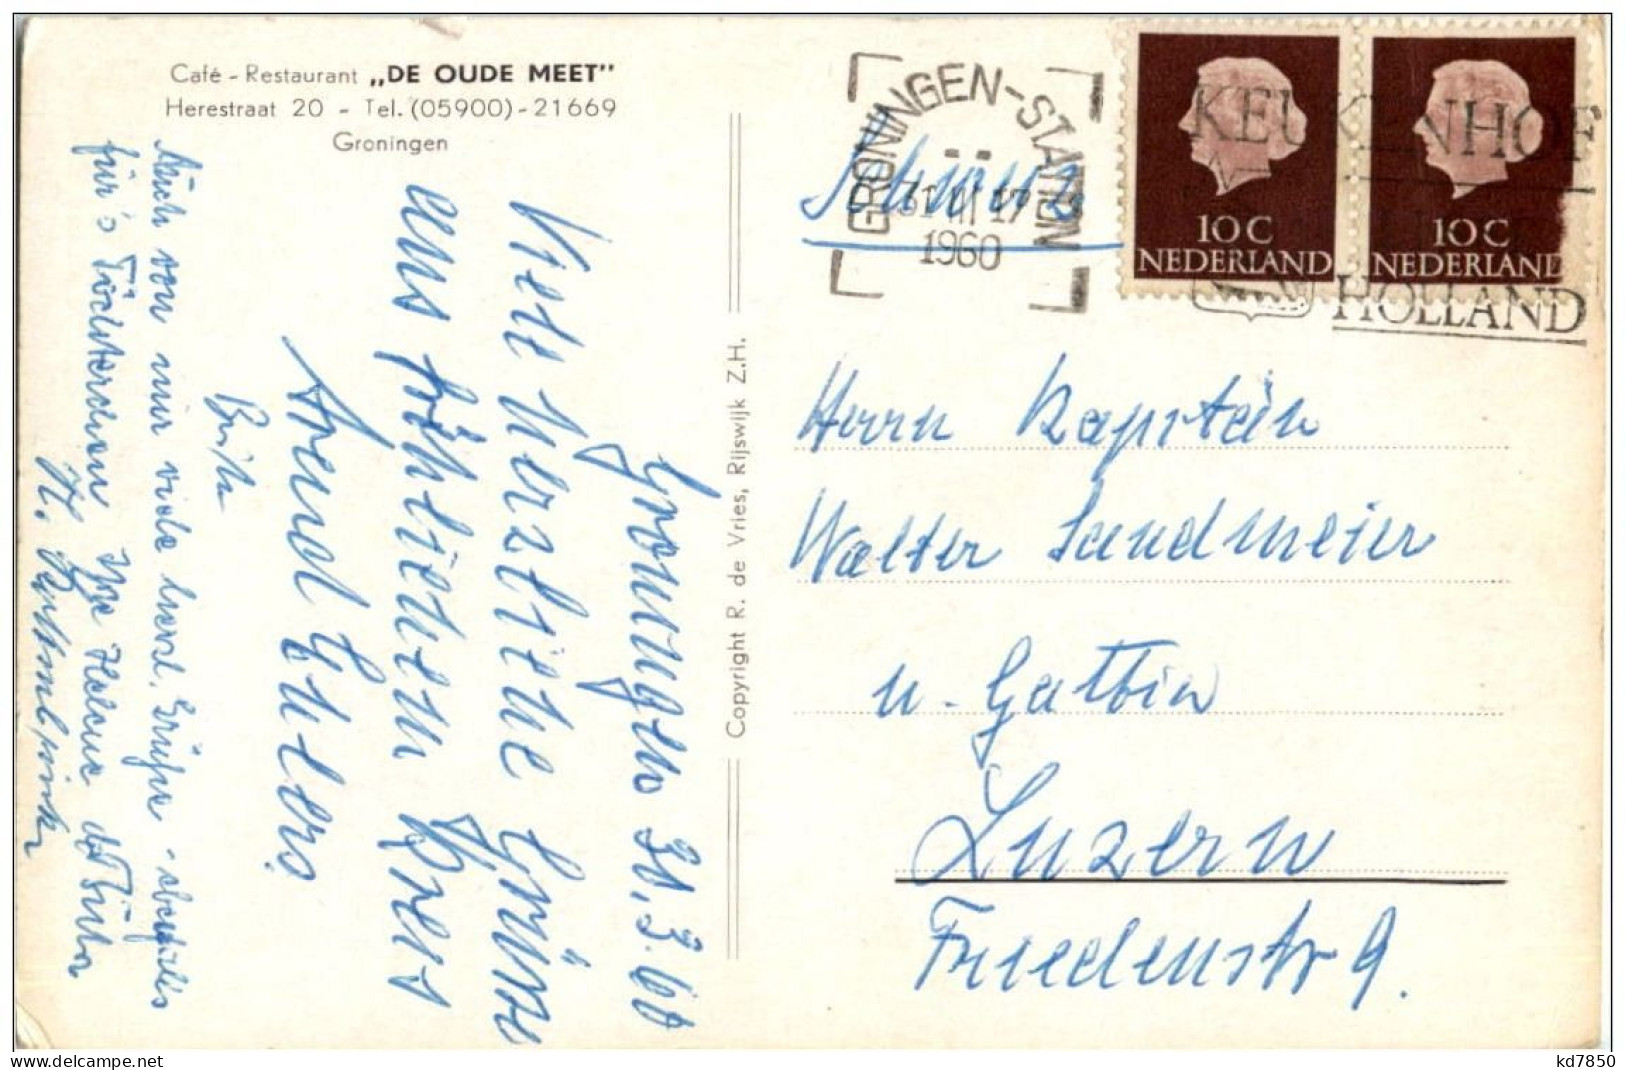 Café - Restaurant „DE OUDE MEET"
Herestraat 20 - Tel. (05900) - 21669
Groningen
GRONINGEN-STATION
31 III 17
1960
KEUKENHOF
HOLLAND
10 C
NEDERLAND
10 C
NEDERLAND
Schweiz
Herrn Kapitän
Walter Sandmeier
u. Gattin
Luzern
Friedenstr 9.
Copyright R. de Vries, Rijswijk Z.H.
Groningen 31.3.60
Viele herzliche Grüsse
aus fröhlichem Kreis
Auch von mir viele herzl. Grüsse - ebenfalls
für's Töchterchen
H.
www.delcampe.net
kd7850